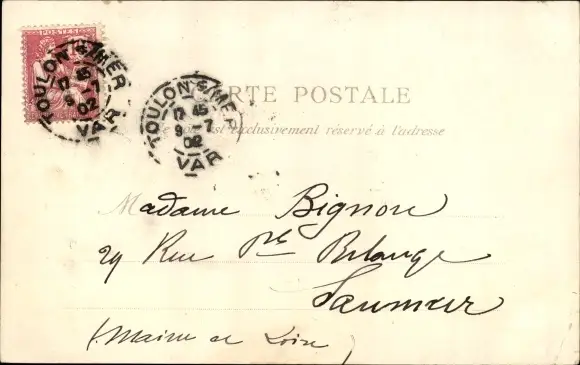 POSTES
10
TOULON S/MER
17 45
9 -7
02
VAR
TOULON S/MER
17 45
9 -7
02
VAR
RTE POSTALE
est exclusivement réservé à l'adresse
Madame Bignon
29 Rue Pte Bilange
Saumur
(Maine et Loire)